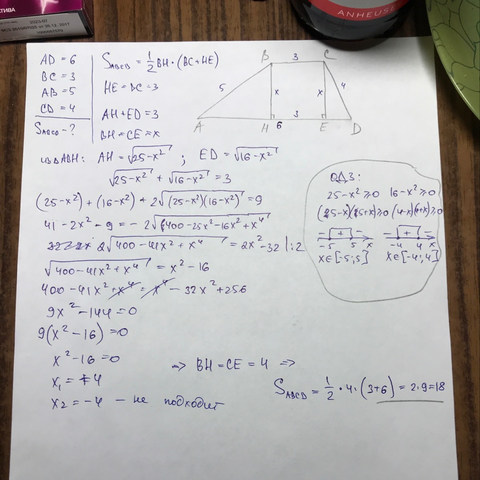 ANHEUSE
AD = 6
BC = 3
AB = 5
CD = 4
S_ABCD - ?
S_ABCD = 1/2 BH · (BC + HE)
HE = BC = 3
AH + ED = 3
BH = CE = x
B 3 C
5 x x 4
A H 3 E D
6
из △ABH: AH = √(25-x²) ; ED = √(16-x²)
√(25-x²) + √(16-x²) = 3
(25-x²) + (16-x²) + 2√((25-x²)(16-x²)) = 9
41 - 2x² - 9 = -2√(400 - 25x² - 16x² + x⁴)
2√(400 - 41x² + x⁴) = 2x² - 32 |:2
√(400 - 41x² + x⁴) = x² - 16
400 - 41x² + x⁴ = x⁴ - 32x² + 256
9x² - 144 = 0
9(x² - 16) = 0
x² - 16 = 0
x₁ = 4
x₂ = -4 — не подходит
ОДЗ:
25 - x² ≥ 0 16 - x² ≥ 0
(5-x)(5+x) ≥ 0 (4-x)(4+x) ≥ 0
- + - - + -
-5 5 x -4 4 x
x ∈ [-5; 5] x ∈ [-4; 4]
⇒ BH = CE = 4 ⇒
S_ABCD = 1/2 · 4 · (3+6) = 2·9 = 18